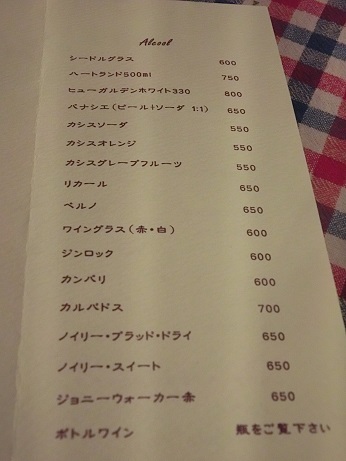 Alcool
シードルグラス 600
ハートランド500ml 750
ヒューガルデンホワイト330 800
パナシエ(ビール+ソーダ 1:1) 650
カシスソーダ 550
カシスオレンジ 550
カシスグレープフルーツ 550
リカール 650
ペルノ 650
ワイングラス(赤・白) 600
ジンロック 600
カンパリ 600
カルバドス 700
ノイリー・プラッド・ドライ 650
ノイリー・スイート 650
ジョニーウォーカー赤 650
ボトルワイン 瓶をご覧下さい